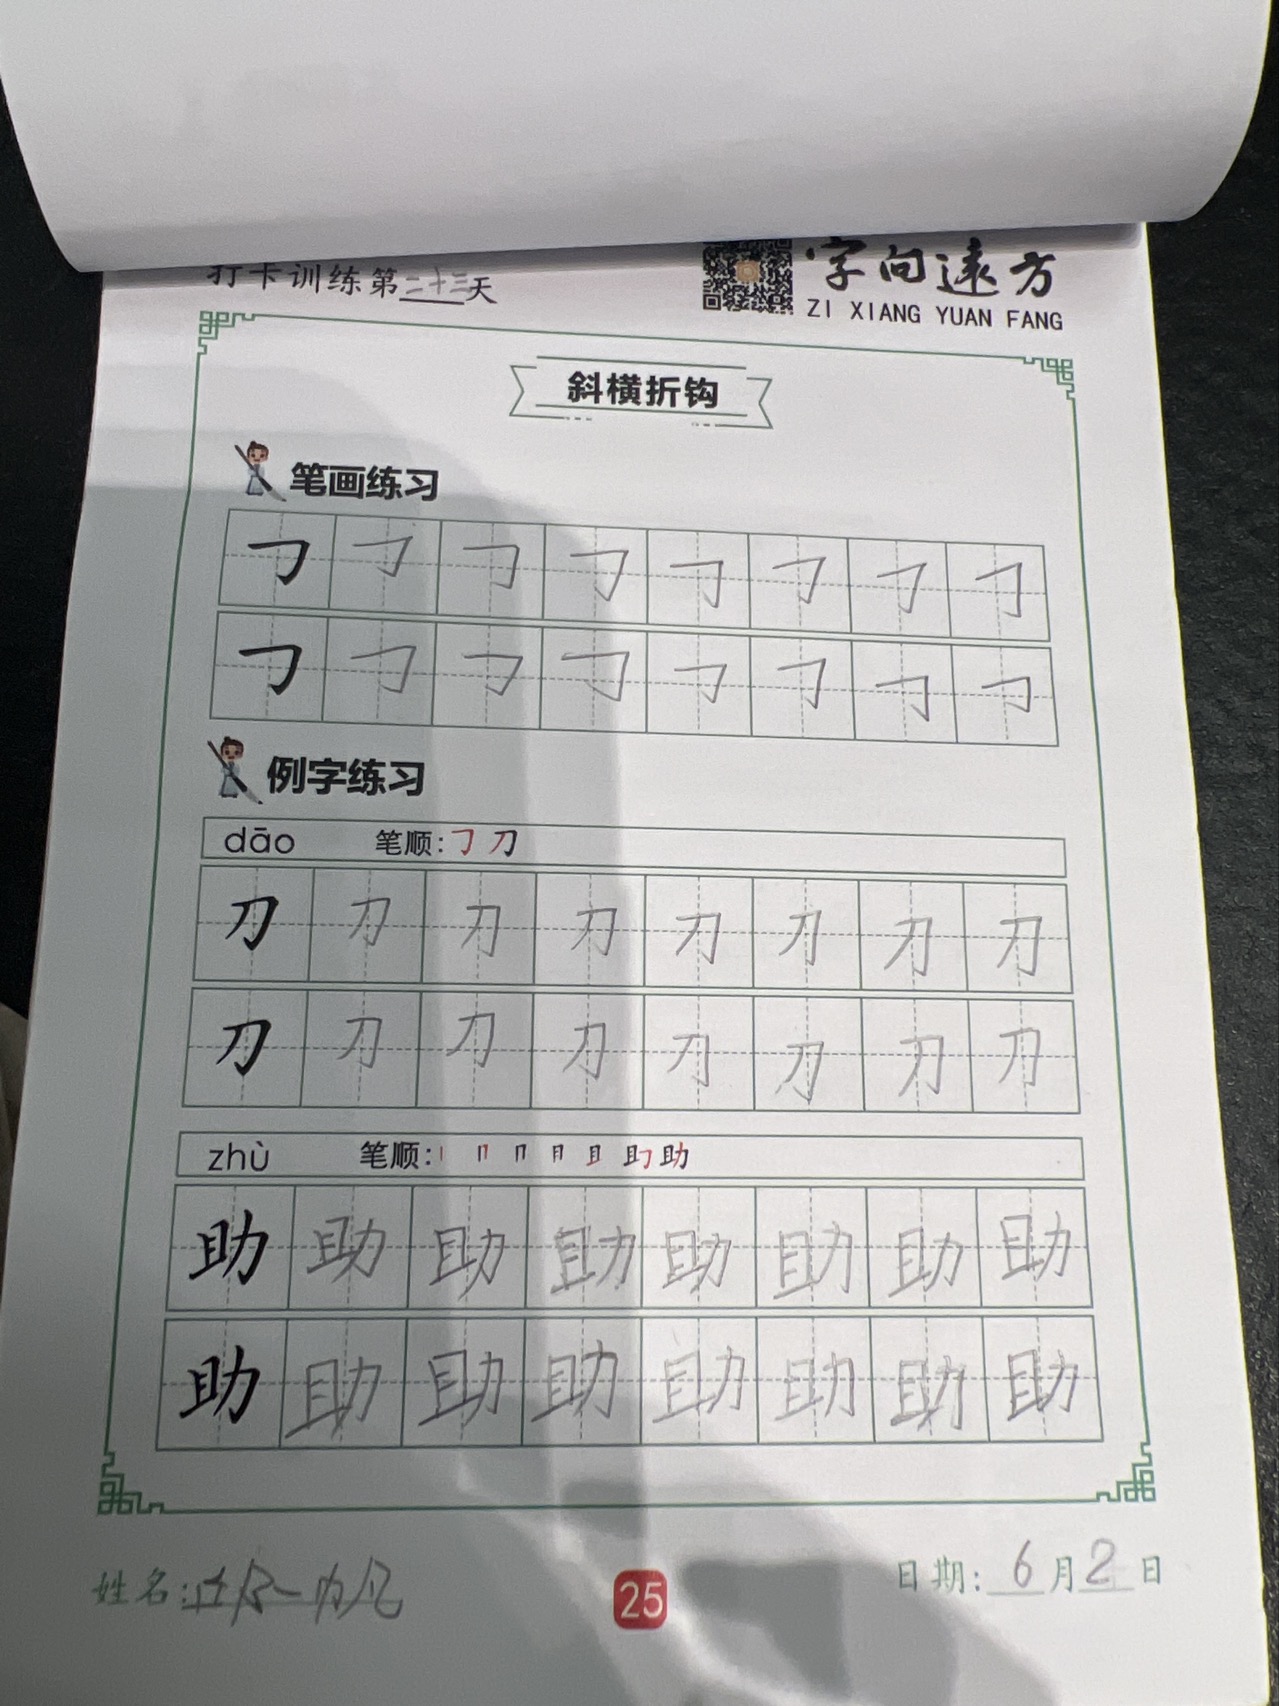 打卡训练第二十三天
字向遠方
ZI XIANG YUAN FANG
斜横折钩
笔画练习
㇆ ㇆ ㇆ ㇆ ㇆ ㇆ ㇆ ㇆
㇆ ㇆ ㇆ ㇆ ㇆ ㇆ ㇆ ㇆
例字练习
dāo 笔顺:㇆ 刀
刀 刀 刀 刀 刀 刀 刀 刀
刀 刀 刀 刀 刀 刀 刀 刀
zhù 笔顺:丨 冂 冃 月 且 助
助 助 助 助 助 助 助 助
助 助 助 助 助 助 助 助
姓名:
25
日期: 6月2日